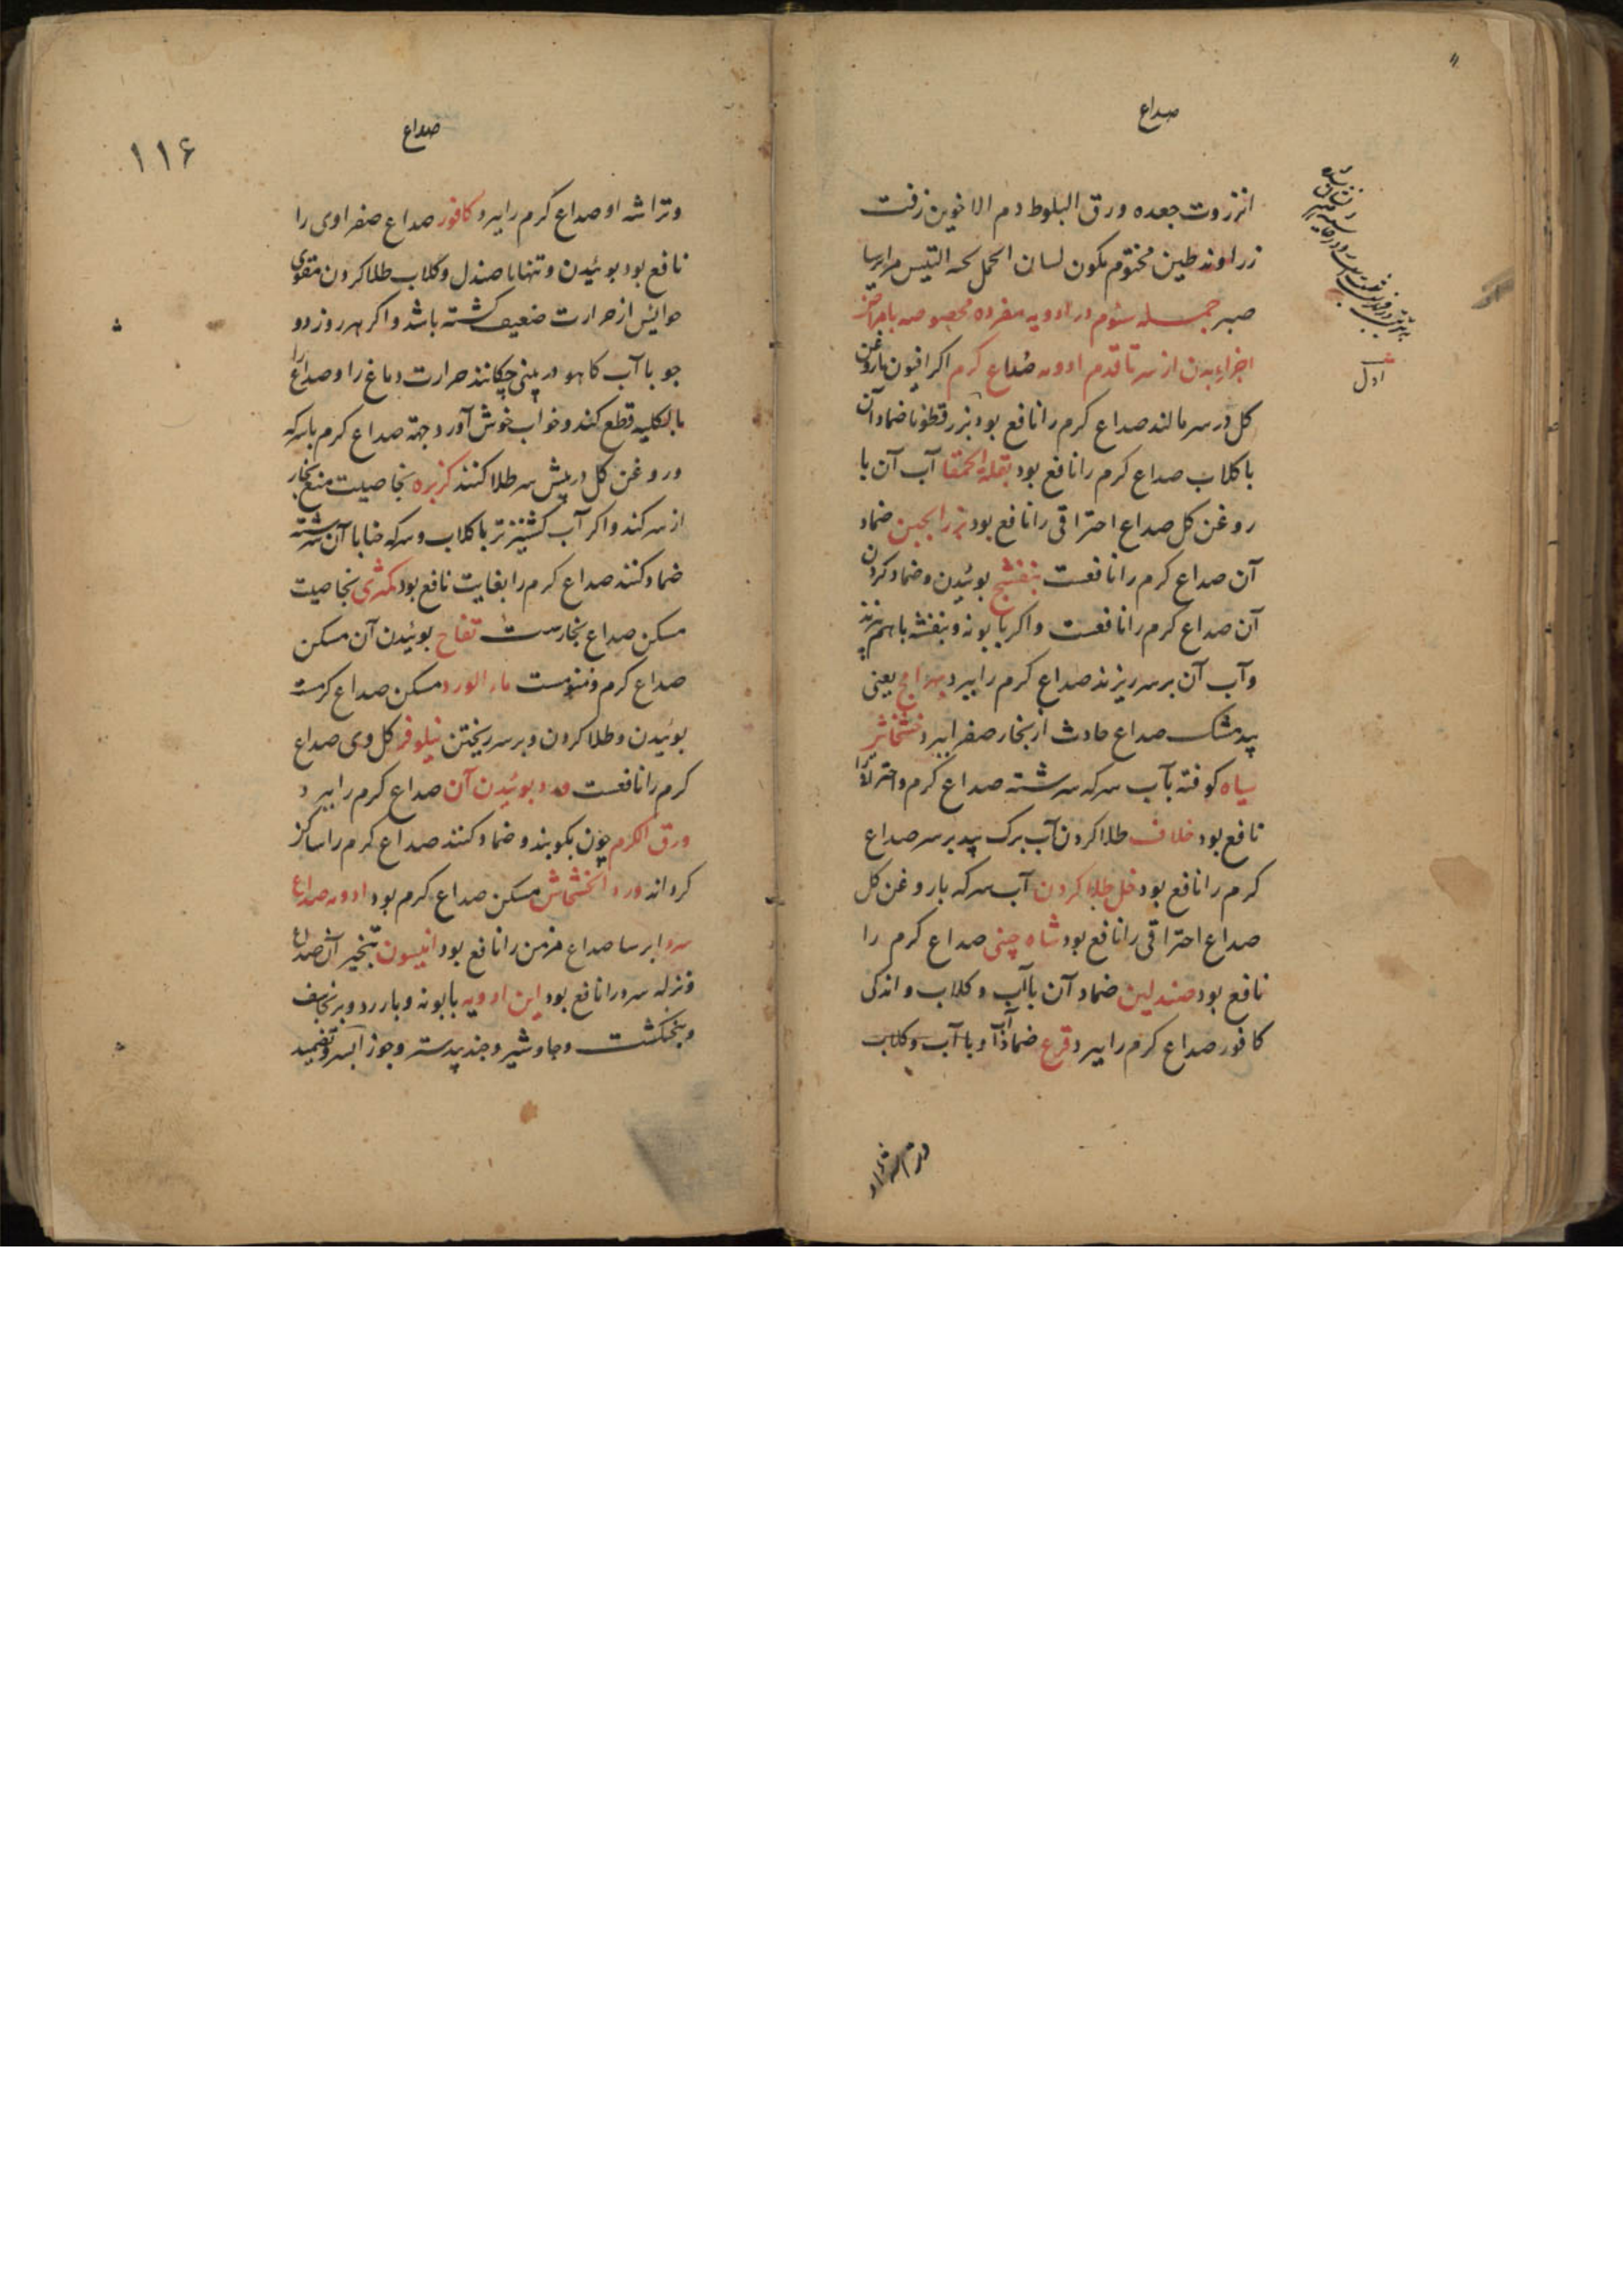 صداع
انزروت جعده ورق البلوط دم الاخوین زفت
زراوند طین مختوم کمون لسان الحمل لحیه التیس مر ایرسا
صبر جمله سوم در ادویه مفرده مخصوصه بامراض
اجزاء بدن از سر تا قدم ادویه صداع کرم اکر افیون با روغن
کل در سر مالند صداع کرم را نافع بود بزرقطونا ضماد آن
با کلاب صداع کرم را نافع بود بقلة الحمقا آب آن با
روغن کل صداع احتراقی را نافع بود ضماد
آن صداع کرم را نافعست بنفشج بوئیدن و ضماد کردن
آن صداع کرم را نافعست و اکر بابونه و بنفشه باهم بپزند
و آب آن بر سر ریزند صداع کرم را ببرد بهرامج یعنی
بیدمشک صداع حادث از بخار صفرا ببرد خشخاش
سیاه کوفته بآب سرکه سرشته صداع کرم و احتراق را
نافع بود خلاف طلا کردن آب برک بید بر سر صداع
کرم را نافع بود خل طلا کردن آب سرکه با روغن کل
صداع احتراقی را نافع بود شاه چینی صداع کرم را
نافع بود صندلین ضماد آن بآب و کلاب و اندکی
کافور صداع کرم را ببرد قرع ضماد آب او با آب و کلاب
اول
صداع
۱۱۶
و تراشه او صداع کرم را ببرد کافور صداع صفراوی را
نافع بود بوئیدن و تنها با صندل و کلاب طلا کردن مقوی
حواس از حرارت ضعیف کشته باشد و اکر هر روز دو
جو با آب کاهو در بینی چکانند حرارت دماغ را و صداع را
بالکلیه قطع کند و خواب خوش آورد جهة صداع کرم با سرکه
و روغن کل در پیش سر طلا کنند کزبره بخاصیت منع بخار
از سر کند و اکر آب کشنیز تر با کلاب و سرکه حنا با آن سرشته
ضماد کنند صداع کرم را بغایت نافع بود کمثری بخاصیت
مسکن صداع بخارست تفاح بوئیدن آن مسکن
صداع کرم و منومست ماء الورد مسکن صداع کرمست
بوئیدن و طلا کردن و بر سر ریختن نیلوفر کل وی صداع
کرم را نافعست ورد بوئیدن آن صداع کرم را ببرد
ورق الکرم چون بکوبند و ضماد کنند صداع کرم را ساکن
کرداند ورد الخشخاش مسکن صداع کرم بود ادویه صداع
سرد ایرسا صداع مزمن را نافع بود انیسون تبخیر آن صداع
و نزله سرد را نافع بود این ادویه بابونه و بارزد و برنجاسف
و پنجنکشت و جاوشیر و جندبیدستر و جوز السرو تضمید